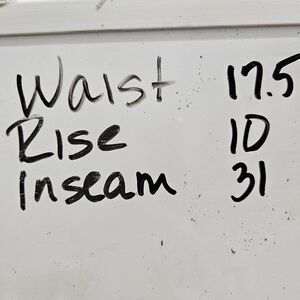 Waist 17.5
Rise 10
Inseam 31